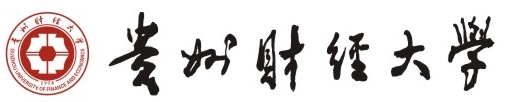 貴州財經大學
GUIZHOU UNIVERSITY OF FINANCE AND ECONOMICS
1958
貴州财經大學